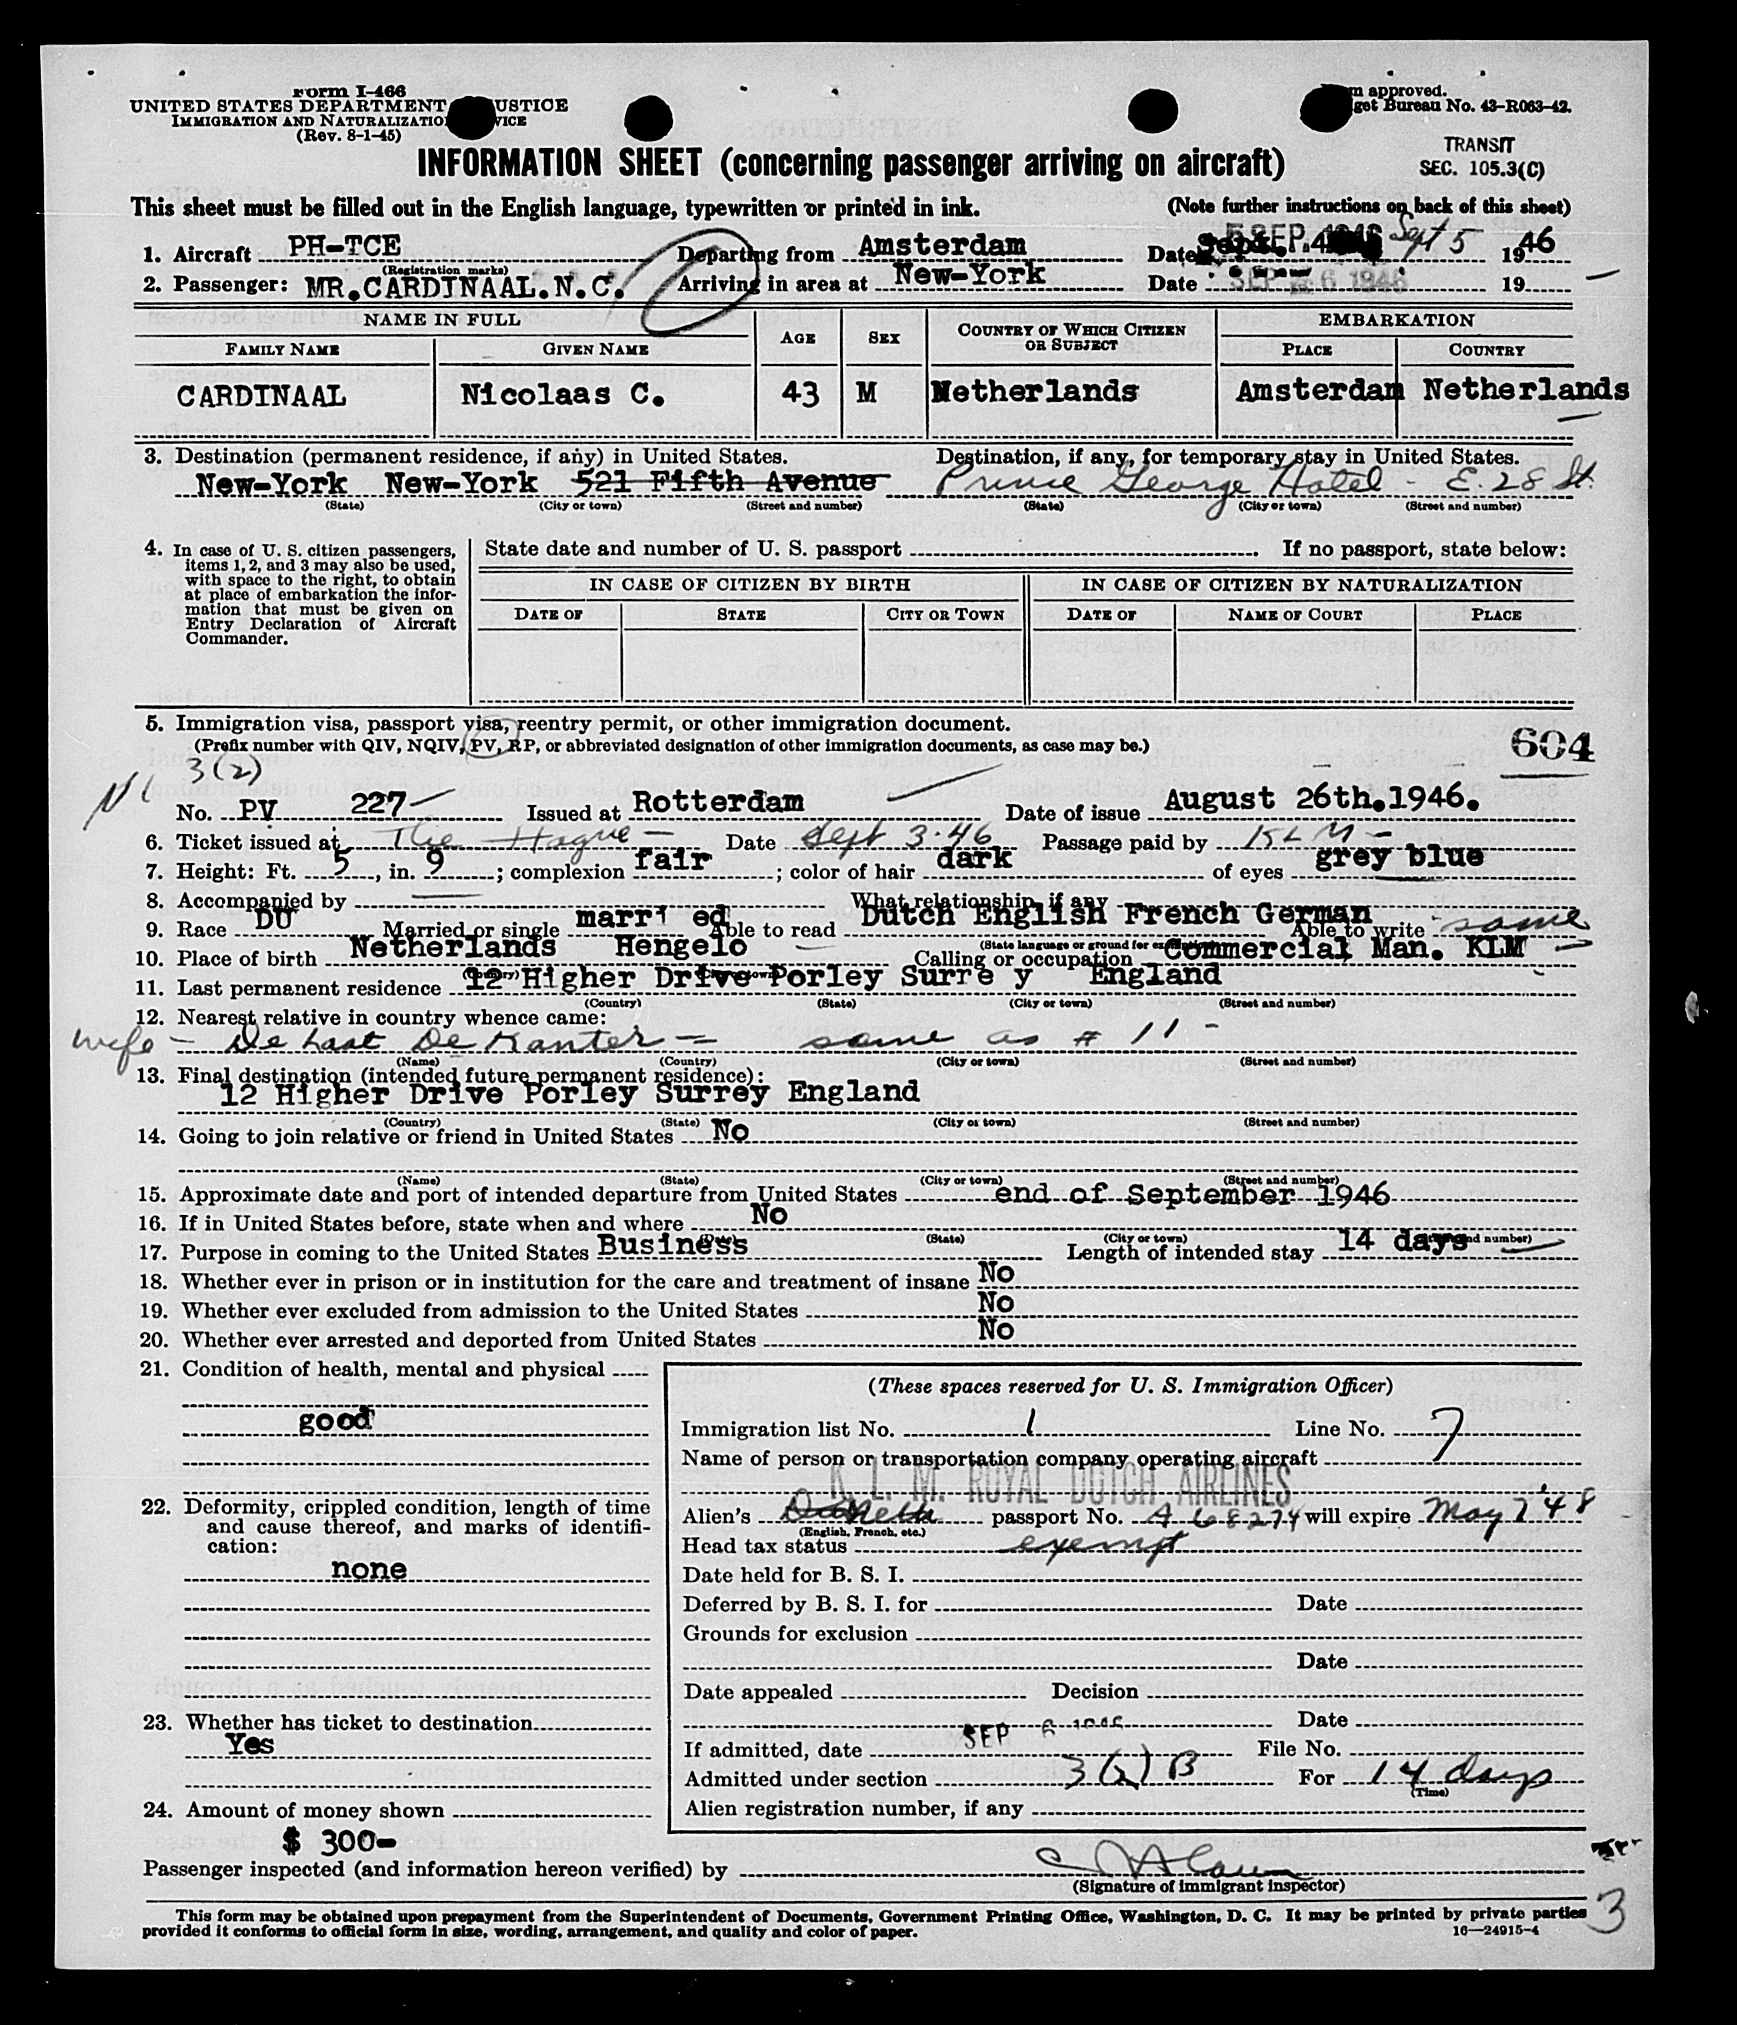 Form I-466
UNITED STATES DEPARTMENT USTICE
IMMIGRATION AND NATURALIZATIO VICE
(Rev. 8-1-45)
m approved.
get Bureau No. 43-R063-42.
TRANSIT
SEC. 105.3(C)
INFORMATION SHEET (concerning passenger arriving on aircraft)
This sheet must be filled out in the English language, typewritten or printed in ink. (Note further instructions on back of this sheet)
1. Aircraft PH-TCE Departing from Amsterdam Date 5 SEP. 1946 Sept 5 1946
(Registration marks)
2. Passenger: MR.CARDINAAL.N.C. Arriving in area at New-York Date SEP 6 1946 19
NAME IN FULL AGE SEX COUNTRY OF WHICH CITIZEN OR SUBJECT EMBARKATION
FAMILY NAME GIVEN NAME PLACE COUNTRY
CARDINAAL Nicolaas C. 43 M Netherlands Amsterdam Netherlands
3. Destination (permanent residence, if any) in United States. Destination, if any, for temporary stay in United States.
New-York New-York 521 Fifth Avenue Prince George Hotel - E. 28 St.
(State) (City or town) (Street and number) (State) (City or town) (Street and number)
4. In case of U. S. citizen passengers, items 1, 2, and 3 may also be used, with space to the right, to obtain at place of embarkation the information that must be given on Entry Declaration of Aircraft Commander.
State date and number of U. S. passport If no passport, state below:
IN CASE OF CITIZEN BY BIRTH IN CASE OF CITIZEN BY NATURALIZATION
DATE OF STATE CITY OR TOWN DATE OF NAME OF COURT PLACE
5. Immigration visa, passport visa, reentry permit, or other immigration document.
(Prefix number with QIV, NQIV, PV, RP, or abbreviated designation of other immigration documents, as case may be.)
604
3(2)
No. PV 227 Issued at Rotterdam Date of issue August 26th.1946.
6. Ticket issued at The Hague Date Sept 3-46 Passage paid by KLM
7. Height: Ft. 5, in. 9; complexion fair; color of hair dark of eyes grey blue
8. Accompanied by What relationship, if any
9. Race DU Married or single married Able to read Dutch English French German Able to write same
(State language or ground for exemption)
10. Place of birth Netherlands Hengelo Calling or occupation Commercial Man. KLM
(Country) (City or town)
11. Last permanent residence 12 Higher Drive Porley Surre y England
(Country) (State) (City or town) (Street and number)
12. Nearest relative in country whence came:
wife - De Kanter = same as # 11 -
(Name) (Country) (City or town) (Street and number)
13. Final destination (intended future permanent residence):
12 Higher Drive Porley Surrey England
(Country) (State) (City or town) (Street and number)
14. Going to join relative or friend in United States No
(Name) (State) (City or town) (Street and number)
15. Approximate date and port of intended departure from United States end of September 1946
16. If in United States before, state when and where No
(Date) (State) (City or town) (Street and number)
17. Purpose in coming to the United States Business Length of intended stay 14 days
18. Whether ever in prison or in institution for the care and treatment of insane No
19. Whether ever excluded from admission to the United States No
20. Whether ever arrested and deported from United States No
21. Condition of health, mental and physical
good
22. Deformity, crippled condition, length of time
and cause thereof, and marks of identifi-
cation:
none
23. Whether has ticket to destination
Yes
24. Amount of money shown
$ 300-
(These spaces reserved for U. S. Immigration Officer)
Immigration list No. 1 Line No. 7
Name of person or transportation company operating aircraft
K. L. M. ROYAL DUTCH AIRLINES
Alien's passport No. A 68274 will expire May 7 '48
(English, French, etc.)
Head tax status exempt
Date held for B. S. I.
Deferred by B. S. I. for Date
Grounds for exclusion
Date
Date appealed Decision
Date
If admitted, date SEP 6 1946 File No.
Admitted under section 3(2) B For 14 days
(Time)
Alien registration number, if any
Passenger inspected (and information hereon verified) by
(Signature of immigrant inspector)
This form may be obtained upon prepayment from the Superintendent of Documents, Government Printing Office, Washington, D. C. It may be printed by private parties
provided it conforms to official form in size, wording, arrangement, and quality and color of paper.
16—24915-4
3